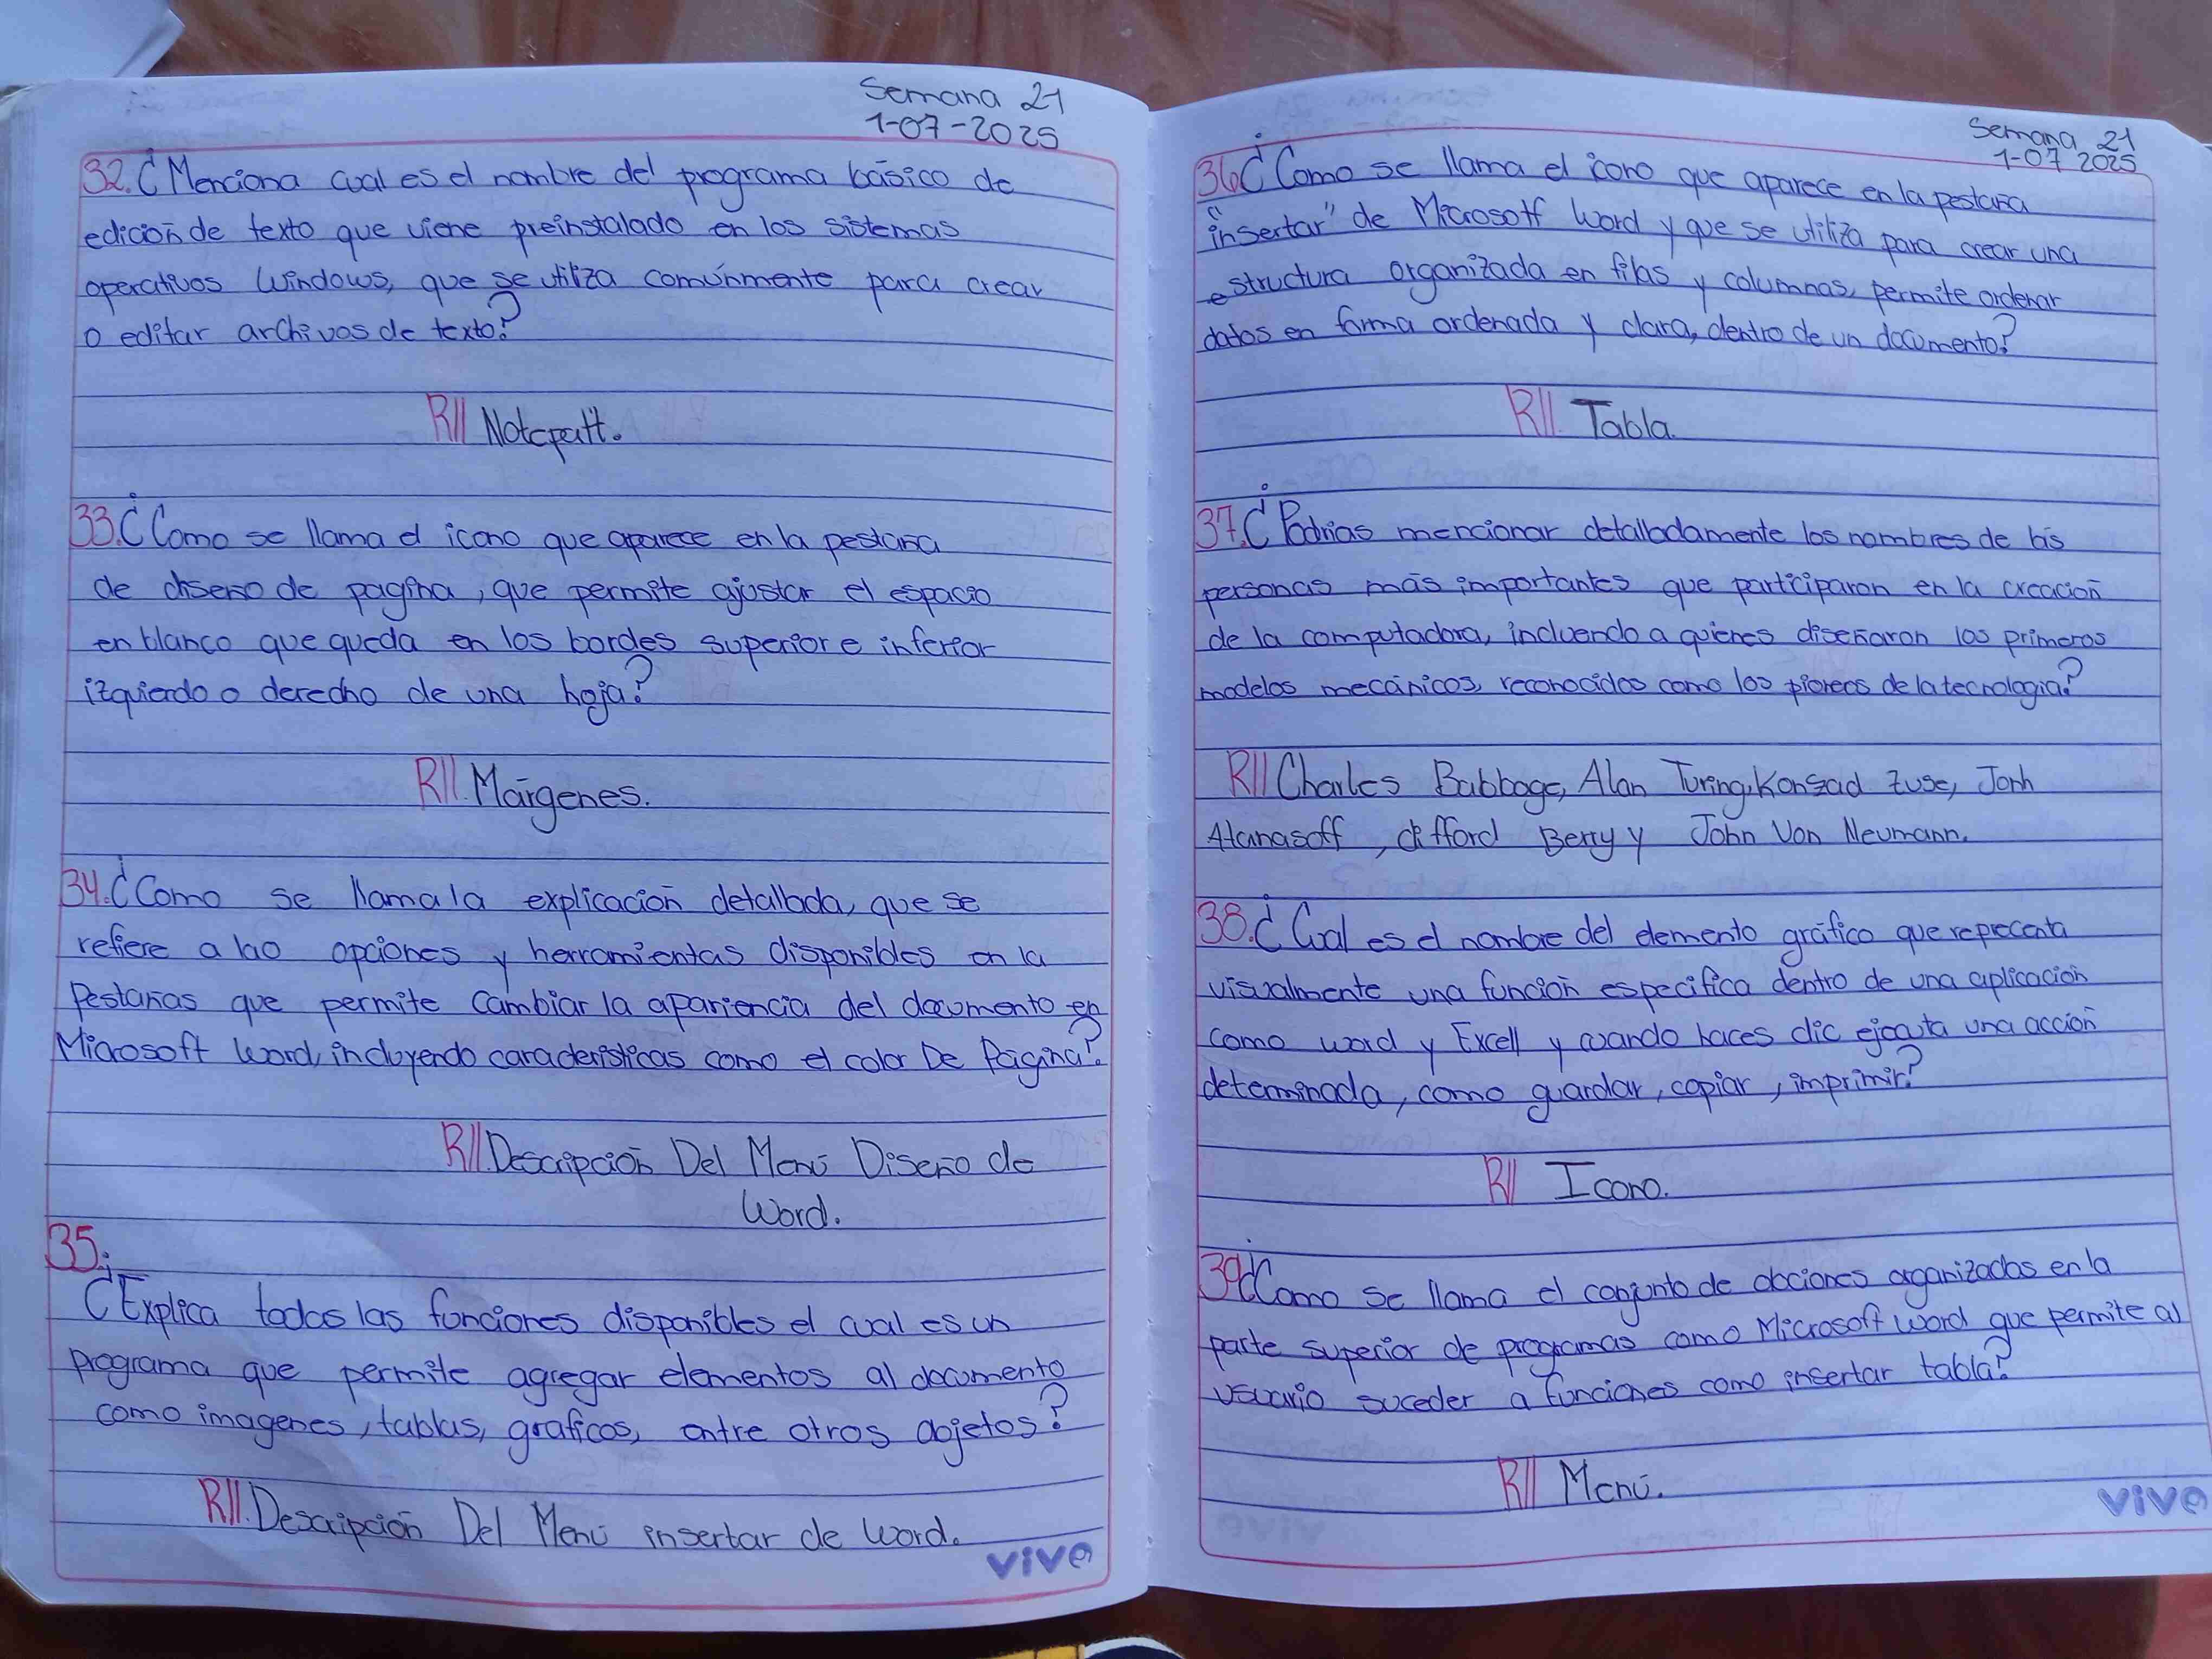 Semana 21
1-07-2025
32. ¿Menciona cual es el nombre del programa básico de
edición de texto que viene preinstalado en los sistemas
operativos Windows, que se utiliza comúnmente para crear
o editar archivos de texto?
R// Notepatt.
33. ¿Como se llama el icono que aparece en la pestaña
de diseño de pagina, que permite ajustar el espacio
en blanco que queda en los bordes superior e inferior
izquierdo o derecho de una hoja?
R//. Márgenes.
34. ¿Como se llama la explicación detallada, que se
refiere a las opciones y herramientas disponibles en la
Pestañas que permite cambiar la apariencia del documento en
Microsoft Word, incluyendo características como el color De Página?
R//. Descripción Del Menú Diseño de
Word.
35.
¿Explica todas las funciones disponibles el cual es un
programa que permite agregar elementos al documento
como imagenes, tablas, graficos, entre otros objetos?
R//. Descripción Del Menú insertar de Word.
vive
Semana 21
1-07 2025
36 ¿Como se llama el icono que aparece en la pestaña
"insertar" de Microsoft Word y que se utiliza para crear una
estructura organizada en filas y columnas, permite ordenar
datos en forma ordenada y clara, dentro de un documento?
R//. Tabla.
37. ¿Podrías mencionar detalladamente los nombres de las
personas más importantes que participaron en la creación
de la computadora, incluendo a quienes diseñaron los primeros
modelos mecánicos, reconocidos como los pioneos de la tecnologia?
R// Charles Babbage, Alan Turing, Konzad Zuse, Jonh
Atanasoff, Clifford Berry y John Von Neumann.
38. ¿Cual es el nombre del elemento gráfico que representa
visualmente una función especifica dentro de una aplicación
como word y Excell y cuando haces clic ejecuta una acción
determinada, como guardar, copiar, imprimir?
R// Icono.
39 ¿Como se llama el conjunto de obciones organizadas en la
parte superior de programas como Microsoft Word que permite al
usuario suceder a funciones como insertar tabla?
R// Menú.
vive